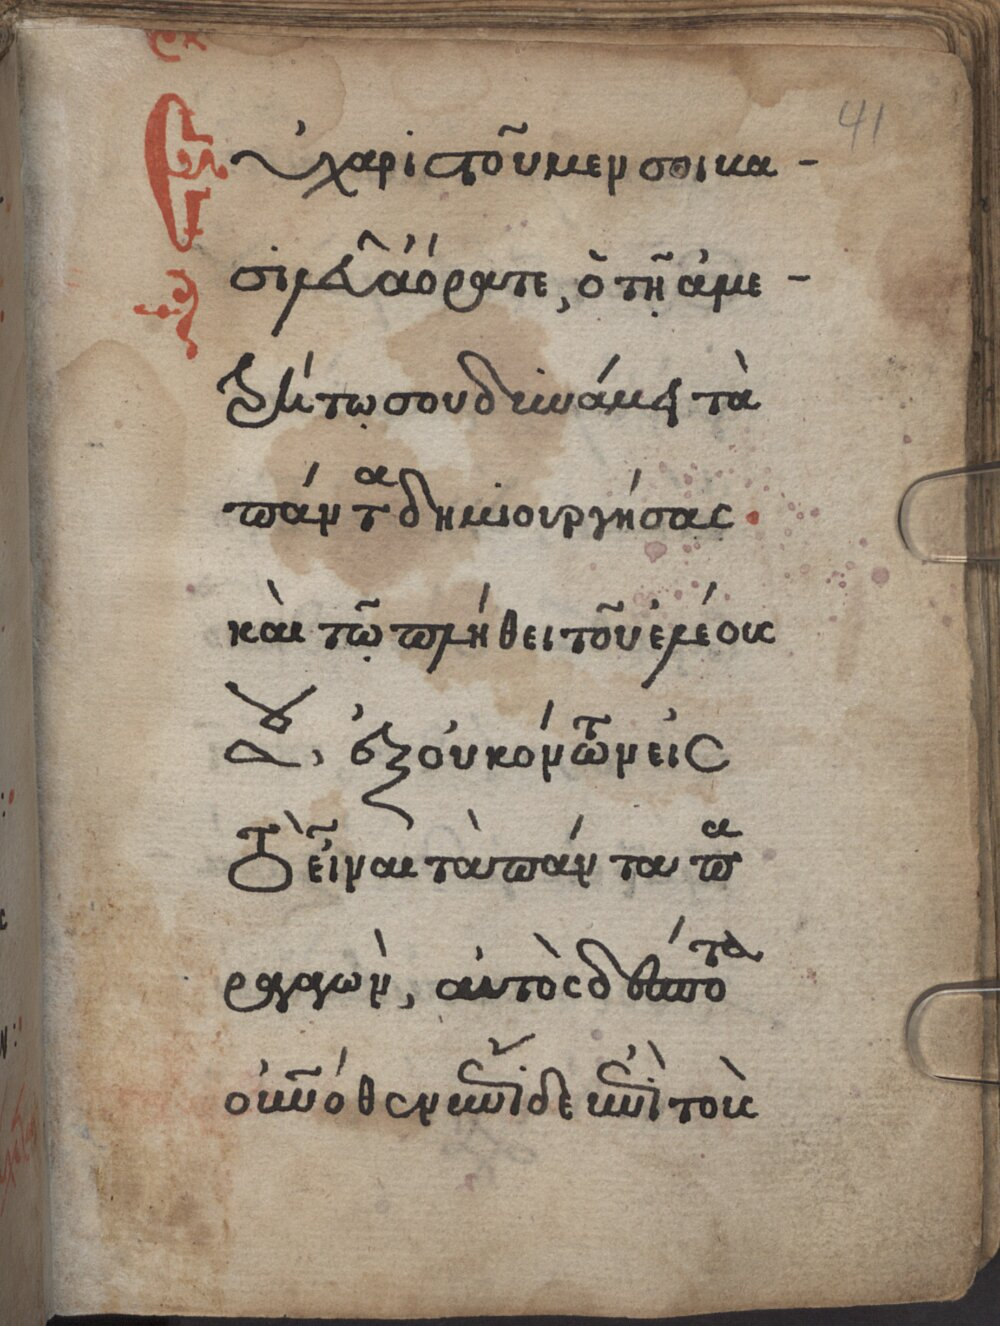 41
Εὐχαριστοῦμεν σοι βα-
σιλεῦ ἀόρατε, ὁ τῇ ἀμε-
τρήτω σου δυνάμει τὰ
πάντα δημιουργήσας.
καὶ τῶ πλήθει τοῦ ἐλέους
σου, ἐξ οὐκ ὄντων εἰς
τὸ εἶναι τὰ πάντα πα
ραγαγών, αὐτὸς δέσποτα
οὐρανόθεν ἔπιδε ἐπὶ τοὺς